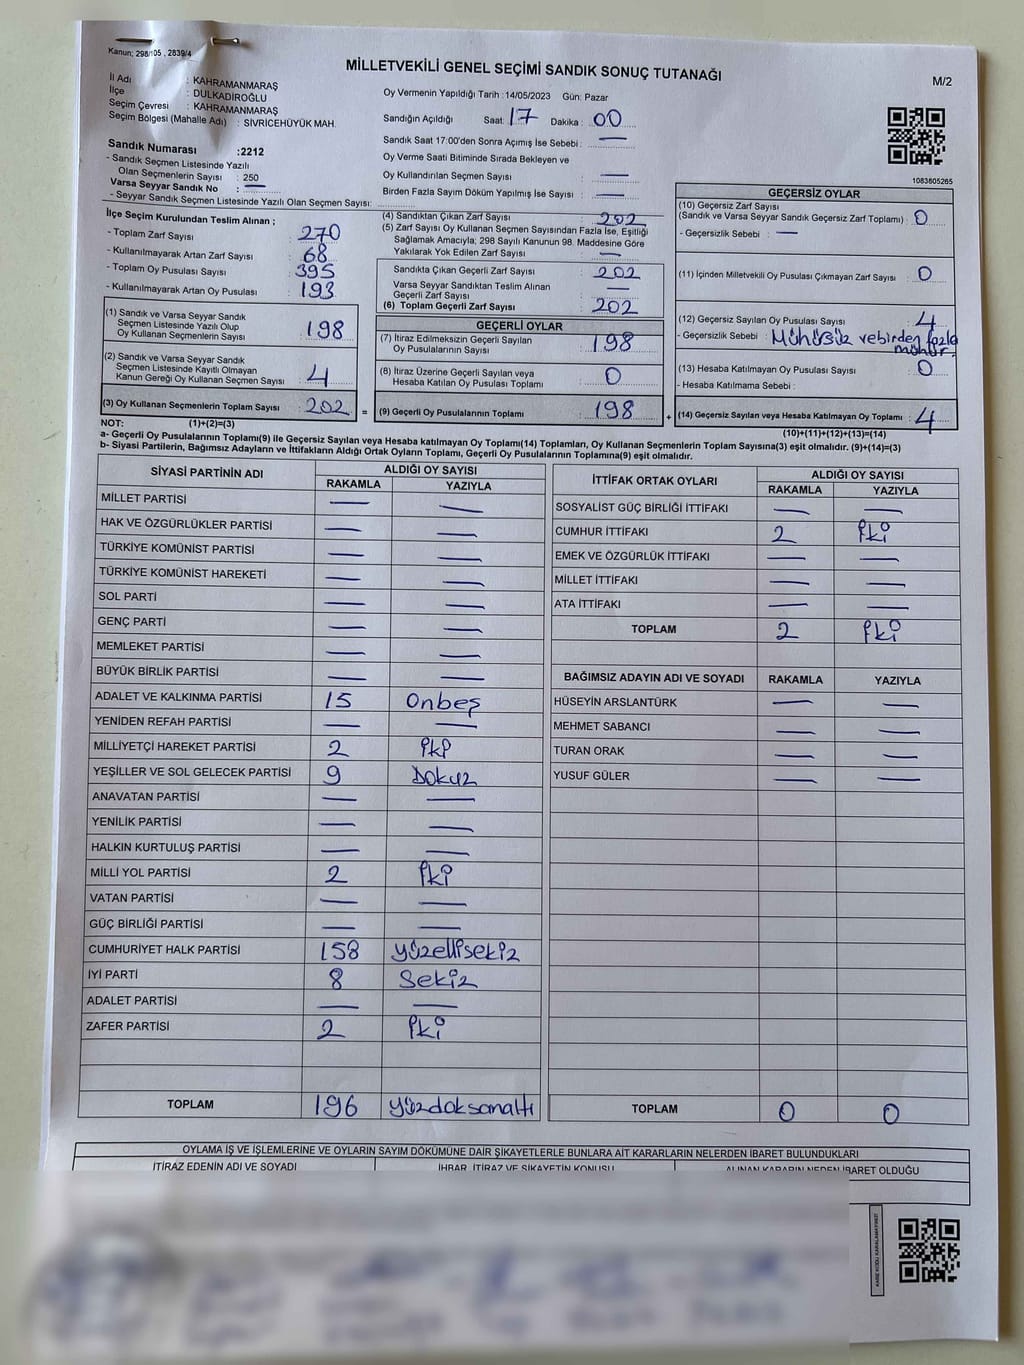 Kanun; 298/105 , 2839/4
MİLLETVEKİLİ GENEL SEÇİMİ SANDIK SONUÇ TUTANAĞI
M/2
İl Adı : KAHRAMANMARAŞ
İlçe : DULKADİROĞLU
Seçim Çevresi : KAHRAMANMARAŞ
Seçim Bölgesi (Mahalle Adı) : SİVRİCEHÜYÜK MAH.
Oy Vermenin Yapıldığı Tarih :14/05/2023 Gün: Pazar
Sandığın Açıldığı Saat: 17 Dakika : 00
Sandık Saat 17:00'den Sonra Açımış İse Sebebi : —
Oy Verme Saati Bitiminde Sırada Bekleyen ve
Oy Kullandırılan Seçmen Sayısı : —
Birden Fazla Sayım Döküm Yapılmış İse Sayısı : —
1083805265
Sandık Numarası :2212
- Sandık Seçmen Listesinde Yazılı
Olan Seçmenlerin Sayısı : 250
Varsa Seyyar Sandık No : —
- Seyyar Sandık Seçmen Listesinde Yazılı Olan Seçmen Sayısı:
İlçe Seçim Kurulundan Teslim Alınan ;
- Toplam Zarf Sayısı : 270
- Kullanılmayarak Artan Zarf Sayısı : 68
- Toplam Oy Pusulası Sayısı : 395
- Kullanılmayarak Artan Oy Pusulası : 193
(1) Sandık ve Varsa Seyyar Sandık
Seçmen Listesinde Yazılı Olup
Oy Kullanan Seçmenlerin Sayısı : 198
(2) Sandık ve Varsa Seyyar Sandık
Seçmen Listesinde Kayıtlı Olmayan
Kanun Gereği Oy Kullanan Seçmen Sayısı : 4
(3) Oy Kullanan Seçmenlerin Toplam Sayısı : 202 =
(1)+(2)=(3)
(4) Sandıktan Çıkan Zarf Sayısı : 202
(5) Zarf Sayısı Oy Kullanan Seçmen Sayısından Fazla İse, Eşitliği
Sağlamak Amacıyla; 298 Sayılı Kanunun 98. Maddesine Göre
Yakılarak Yok Edilen Zarf Sayısı : —
Sandıkta Çıkan Geçerli Zarf Sayısı : 202
Varsa Seyyar Sandıktan Teslim Alınan
Geçerli Zarf Sayısı : —
(6) Toplam Geçerli Zarf Sayısı : 202
GEÇERLİ OYLAR
(7) İtiraz Edilmeksizin Geçerli Sayılan
Oy Pusulalarının Sayısı : 198
(8) İtiraz Üzerine Geçerli Sayılan veya
Hesaba Katılan Oy Pusulası Toplamı : 0
(9) Geçerli Oy Pusulalarının Toplamı : 198 +
GEÇERSİZ OYLAR
(10) Geçersiz Zarf Sayısı
(Sandık ve Varsa Seyyar Sandık Geçersiz Zarf Toplamı) : 0
- Geçersizlik Sebebi : —
(11) İçinden Milletvekili Oy Pusulası Çıkmayan Zarf Sayısı : 0
(12) Geçersiz Sayılan Oy Pusulası Sayısı : 4
- Geçersizlik Sebebi : Mühürsüz vebirden fazla
mühür.
(13) Hesaba Katılmayan Oy Pusulası Sayısı : 0
- Hesaba Katılmama Sebebi :
(14) Geçersiz Sayılan veya Hesaba Katılmayan Oy Toplamı : 4
(10)+(11)+(12)+(13)=(14)
NOT:
a- Geçerli Oy Pusulalarının Toplamı(9) ile Geçersiz Sayılan veya Hesaba katılmayan Oy Toplamı(14) Toplamları, Oy Kullanan Seçmenlerin Toplam Sayısına(3) eşit olmalıdır. (9)+(14)=(3)
b- Siyasi Partilerin, Bağımsız Adayların ve İttifakların Aldığı Ortak Oyların Toplamı, Geçerli Oy Pusulalarının Toplamına(9) eşit olmalıdır.
SİYASİ PARTİNİN ADI ALDIĞI OY SAYISI
RAKAMLA YAZIYLA
MİLLET PARTİSİ — —
HAK VE ÖZGÜRLÜKLER PARTİSİ — —
TÜRKİYE KOMÜNİST PARTİSİ — —
TÜRKİYE KOMÜNİST HAREKETİ — —
SOL PARTİ — —
GENÇ PARTİ — —
MEMLEKET PARTİSİ — —
BÜYÜK BİRLİK PARTİSİ — —
ADALET VE KALKINMA PARTİSİ 15 Onbeş
YENİDEN REFAH PARTİSİ — —
MİLLİYETÇİ HAREKET PARTİSİ 2 İki
YEŞİLLER VE SOL GELECEK PARTİSİ 9 Dokuz
ANAVATAN PARTİSİ — —
YENİLİK PARTİSİ — —
HALKIN KURTULUŞ PARTİSİ — —
MİLLİ YOL PARTİSİ 2 İki
VATAN PARTİSİ — —
GÜÇ BİRLİĞİ PARTİSİ — —
CUMHURİYET HALK PARTİSİ 158 yüzellisekiz
İYİ PARTİ 8 Sekiz
ADALET PARTİSİ — —
ZAFER PARTİSİ 2 İki
TOPLAM 196 yüzdoksanaltı
İTTİFAK ORTAK OYLARI ALDIĞI OY SAYISI
RAKAMLA YAZIYLA
SOSYALİST GÜÇ BİRLİĞİ İTTİFAKI — —
CUMHUR İTTİFAKI 2 İki
EMEK VE ÖZGÜRLÜK İTTİFAKI — —
MİLLET İTTİFAKI — —
ATA İTTİFAKI — —
TOPLAM 2 İki
BAĞIMSIZ ADAYIN ADI VE SOYADI RAKAMLA YAZIYLA
HÜSEYİN ARSLANTÜRK — —
MEHMET SABANCI — —
TURAN ORAK — —
YUSUF GÜLER — —
TOPLAM 0 0
OYLAMA İŞ VE İŞLEMLERİNE VE OYLARIN SAYIM DÖKÜMÜNE DAİR ŞİKAYETLERLE BUNLARA AİT KARARLARIN NELERDEN İBARET BULUNDUKLARI
İTİRAZ EDENİN ADI VE SOYADI İHBAR, İTİRAZ VE ŞİKAYETİN KONUSU ALINAN KARARIN NEDEN İBARET OLDUĞU
KARE KODU KARALAMAYINIZ!